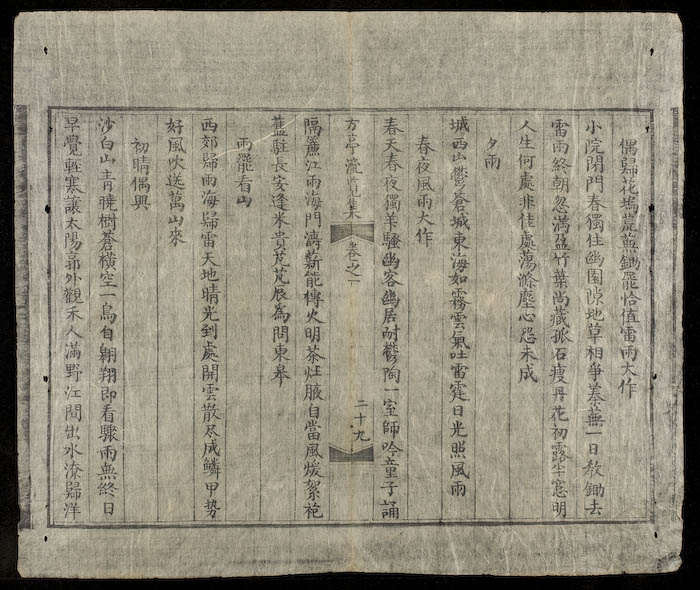 偶歸花塢蕪無鋤罷恰值雷雨大作
小院閉門春獨住幽園隙地草相爭蓁蕪一日教鋤去
雷雨終朝忽滿盈竹葉尚藏孤石瘦丹花初露半窓明
人生何處非佳處蕩滌塵心恐未成
夕雨
城西山鬱蒼城東海如霧雲氣吐雷霆日光照風雨
春夜風雨大作
春天春夜獨羊騷幽客幽居耐鬱陶一室師吟童子誦
方亭流覽集 卷之一 二十九
隔簾江雨海門濤薪能槫火明茶灶腋自當風煖絮袍
舊駐長安逢米貴芃芃辰為問東皋
雨罷看山
西郊歸雨海歸雷天地晴光到處開雲散尽成鱗甲勢
好風吹送萬山來
初晴偶興
沙白山青曉樹蒼橫空一鳥自翱翔即看驟雨無終日
早覺輕寒讓太陽郭外觀禾人滿野江間出水潦歸洋